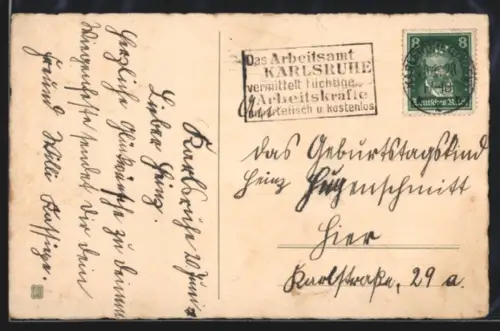 Karlsruhe 20 Juni
Lieber Heinz.
Herzliche Glückwünsche zu deinem
Wiegenfeste sendet dir dein
Freund Willi
Das Arbeitsamt
KARLSRUHE
vermittelt tüchtige
Arbeitskräfte
u. kostenlos
8 8
Deutsches Reich
das Geburtstagskind
Heinz Hugenschmitt
Hier
Karlstraße, 29 a.